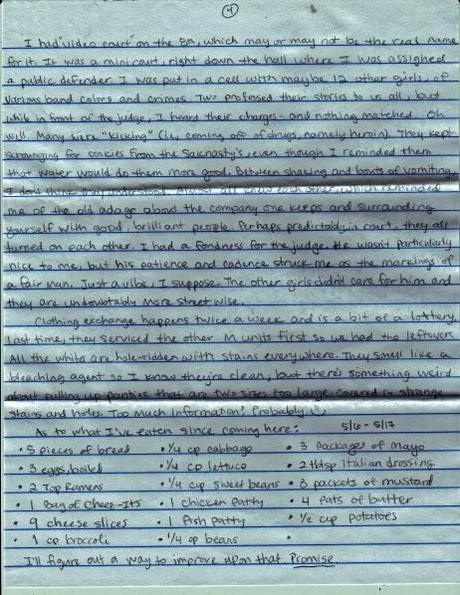 4
I had "video court" on the 8th, which may or may not be the real name
for it. It was a mini court, right down the hall where I was assigned
a public defender. I was put in a cell with maybe 12 other girls, of
various band colors and crimes. Two professed their stories to us all, but
while in front of the judge, I heard their charges - and nothing matched. Oh
will. Many were "kicking" (i.e., coming off of drugs, namely heroin). They kept
scrounging for cookies from the Saknasty's, even though I reminded them
that water would do them more good. Between shaking and bouts of vomiting,
I don't think Almost all knew each other, which reminded
me of the old adage about the company one keeps and surrounding
yourself with good, brilliant people. Perhaps predictably in court, they all
turned on each other. I had a fondness for the judge. He wasn't particularly
nice to me, but his patience and cadence struck me as the markings of
a fair man. Just a vibe, I suppose. The other girls didn't care for him and
they are undoubtably more street wise.
Clothing exchange happens twice a week and is a bit of a lottery.
Last time, they serviced the other M units first so we had the leftovers.
All the whites are hole-ridden with stains everywhere. They smell like a
bleaching agent so I know they're clean, but there's something weird
about pulling up panties that are two sizes too large covered in strange
stains and holes. Too Much Information? Probably.
As to what I've eaten since coming here: 5/6 - 5/17
• 5 pieces of bread • 1/4 cp cabbage • 3 packages of mayo
• 3 eggs, boiled • 1/4 cp lettuce • 2 tblsp italian dressing
• 2 Top Ramens • 1/4 cup sweet beans • 3 packets of mustard
• 1 bag of Cheez-Its • 1 chicken patty • 4 pats of butter
• 9 cheese slices • 1 fish patty • 1/2 cup potatoes
• 1 cp broccoli • 1/4 cp beans •
I'll figure out a way to improve upon that. Promise.